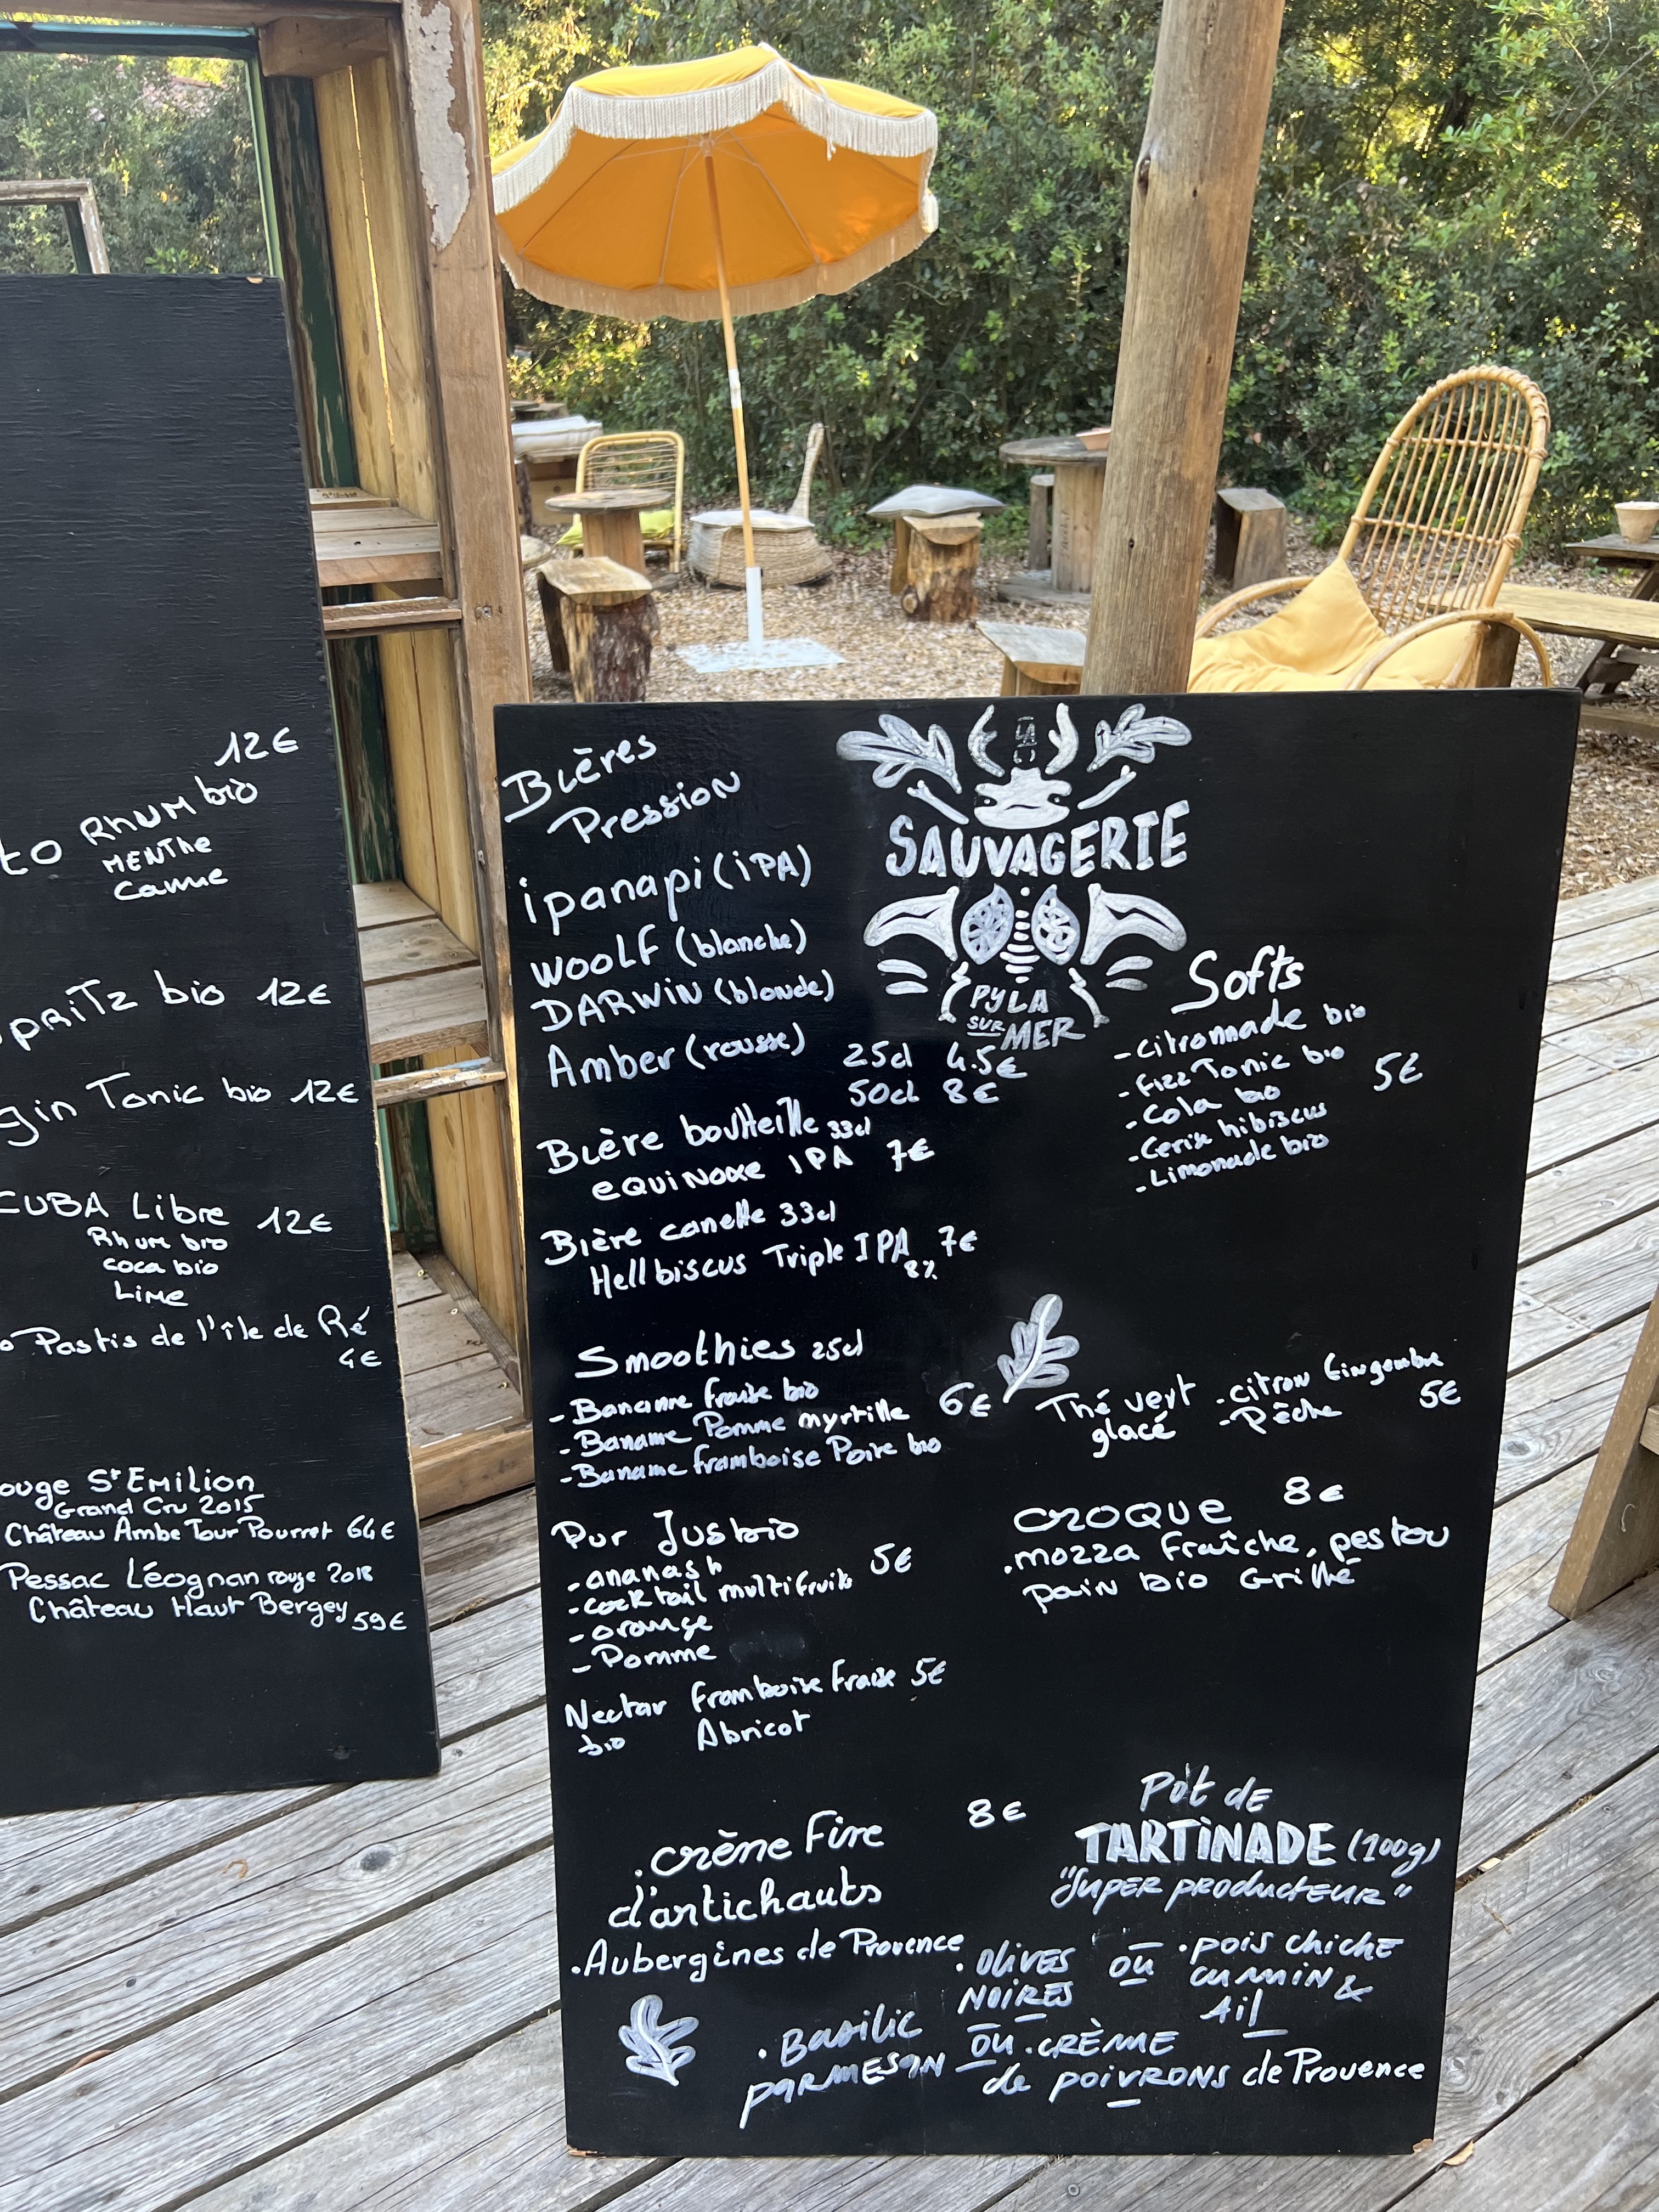 12€
to Rhum bio
MENThe
Canne
pRiTz bio 12€
gin Tonic bio 12€
CUBA Libre 12€
Rhum bio
coca bio
Lime
Pastis de l'île de Ré
4€
ouge St Emilion
Grand Cru 2015
Château Ambe Tour Pourret 64€
Pessac Léognan rouge 2018
Château Haut Bergey 59€
Bières
Pression
ipanapi (iPA)
WOOLF (blanche)
DARWiN (blonde)
Amber (rousse) 25cl 4.5€
50cl 8€
Bière boutteille 33cl
eQUiNoxe IPA 7€
Bière canette 33cl
Hellbiscus Triple IPA 7€
8%
LA
SAUVAGERIE
PYLA
SUR MER
Softs
- Citronnade bio
- Fizz Tonic bio
- Cola bio 5€
- Cerise hibiscus
- Limonade bio
Smoothies 25cl
- Banane fraise bio
- Banane Pomme myrtille 6€
- Banane framboise Poire bio
Thé vert - citron Gingembre
glacé - Pêche 5€
Pur Jus bio
- ananas
- cocktail multifruits 5€
- orange
- Pomme
Nectar framboise fraise 5€
bio Abricot
CROQUE 8€
.mozza fraîche, pestou
pain bio Grillé
8€
.crème Fine
d'artichauts
.Aubergines de Provence
Pôt de
TARTiNADE (100g)
"Super producteur"
. OLiVES OU . pois chiche
NOIRES cumin &
Ail
. Basilic OU . CRÈME
parmesan de poivrons de Provence